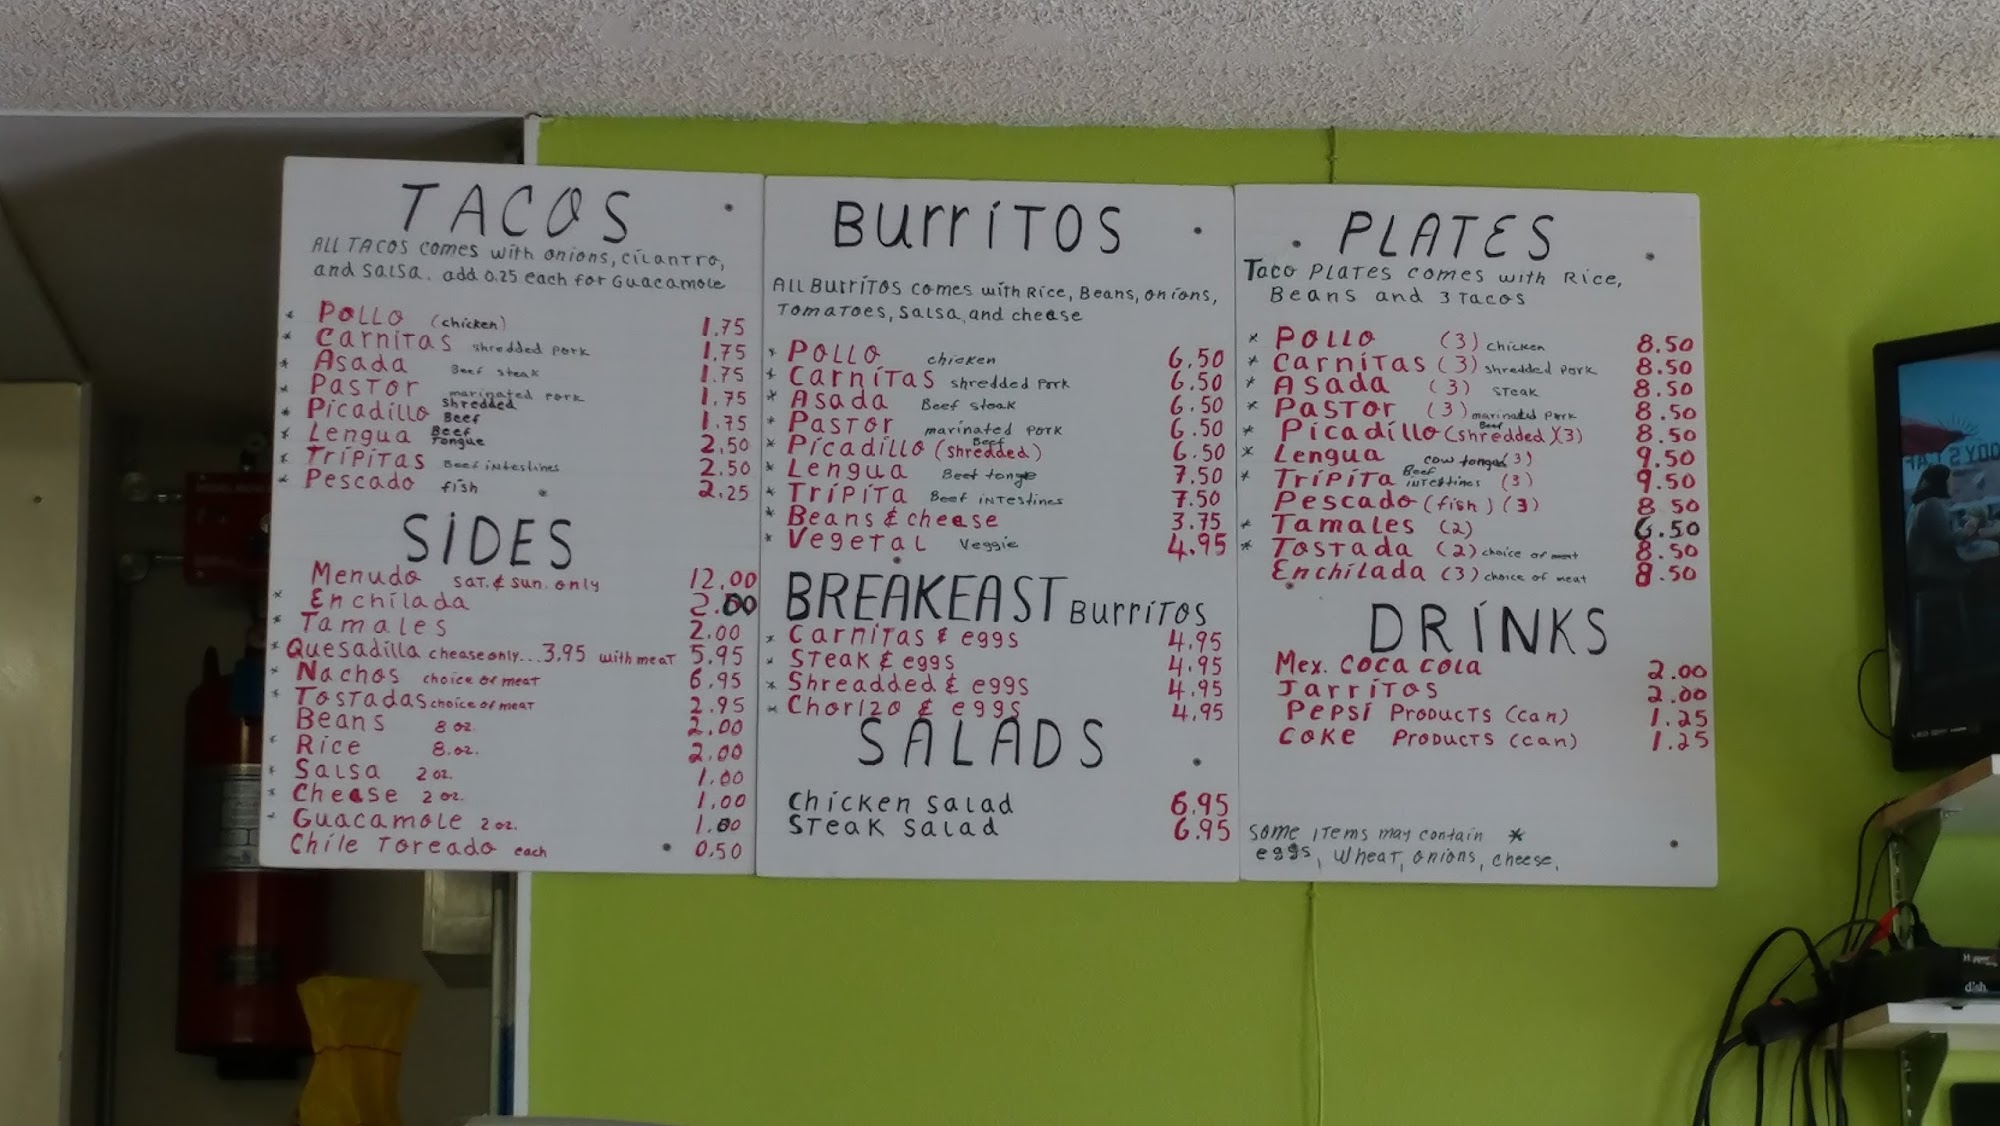 TACOS
ALL TACOS comes with onions, cilantro,
and salsa. add 0.25 each for Guacamole
* Pollo (chicken) 1.75
* Carnitas shredded pork 1.75
* Asada Beef steak 1.75
* Pastor marinated pork 1.75
* Picadillo shredded Beef 1.75
* Lengua Beef Tongue 2.50
* Tripitas Beef intestines 2.50
* Pescado fish 2.25
SIDES
Menudo sat. & sun. only 12.00
* Enchilada 2.00
* Tamales 2.00
* Quesadilla chease only...3.95 with meat 5.95
* Nachos choice of meat 6.95
* Tostadas choice of meat 2.95
Beans 8 oz. 2.00
* Rice 8.oz. 2.00
* Salsa 2 oz. 1.00
* Cheese 2 oz. 1.00
* Guacamole 2 oz. 1.00
Chile Toreado each 0.50
Burritos
All Burritos comes with Rice, Beans, onions,
Tomatoes, salsa, and cheese
* Pollo chicken 6.50
* Carnitas shredded pork 6.50
* Asada Beef steak 6.50
* Pastor marinated pork 6.50
* Picadillo (shredded Beef) 6.50
* Lengua Beef tonge 7.50
* Tripita Beef intestines 7.50
* Beans & cheese 3.75
* Vegetal Veggie 4.95
BREAKFAST Burritos
* Carnitas & eggs 4.95
* Steak & eggs 4.95
* Shreadded & eggs 4.95
* Chorizo & eggs 4.95
SALADS
Chicken salad 6.95
Steak salad 6.95
PLATES
Taco Plates comes with Rice,
Beans and 3 tacos
* Pollo (3) chicken 8.50
* Carnitas (3) shredded pork 8.50
* Asada (3) steak 8.50
* Pastor (3) marinated pork 8.50
* Picadillo (shredded Beef) (3) 8.50
* Lengua cow tongue (3) 9.50
* Tripita Beef intestines (3) 9.50
Pescado (fish) (3) 8.50
* Tamales (2) 6.50
* Tostada (2) choice of meat 8.50
Enchilada (3) choice of meat 8.50
DRINKS
Mex. Coca Cola 2.00
Jarritos 2.00
Pepsi Products (can) 1.25
Coke Products (can) 1.25
Some items may contain *
eggs, wheat, onions, cheese,
dish